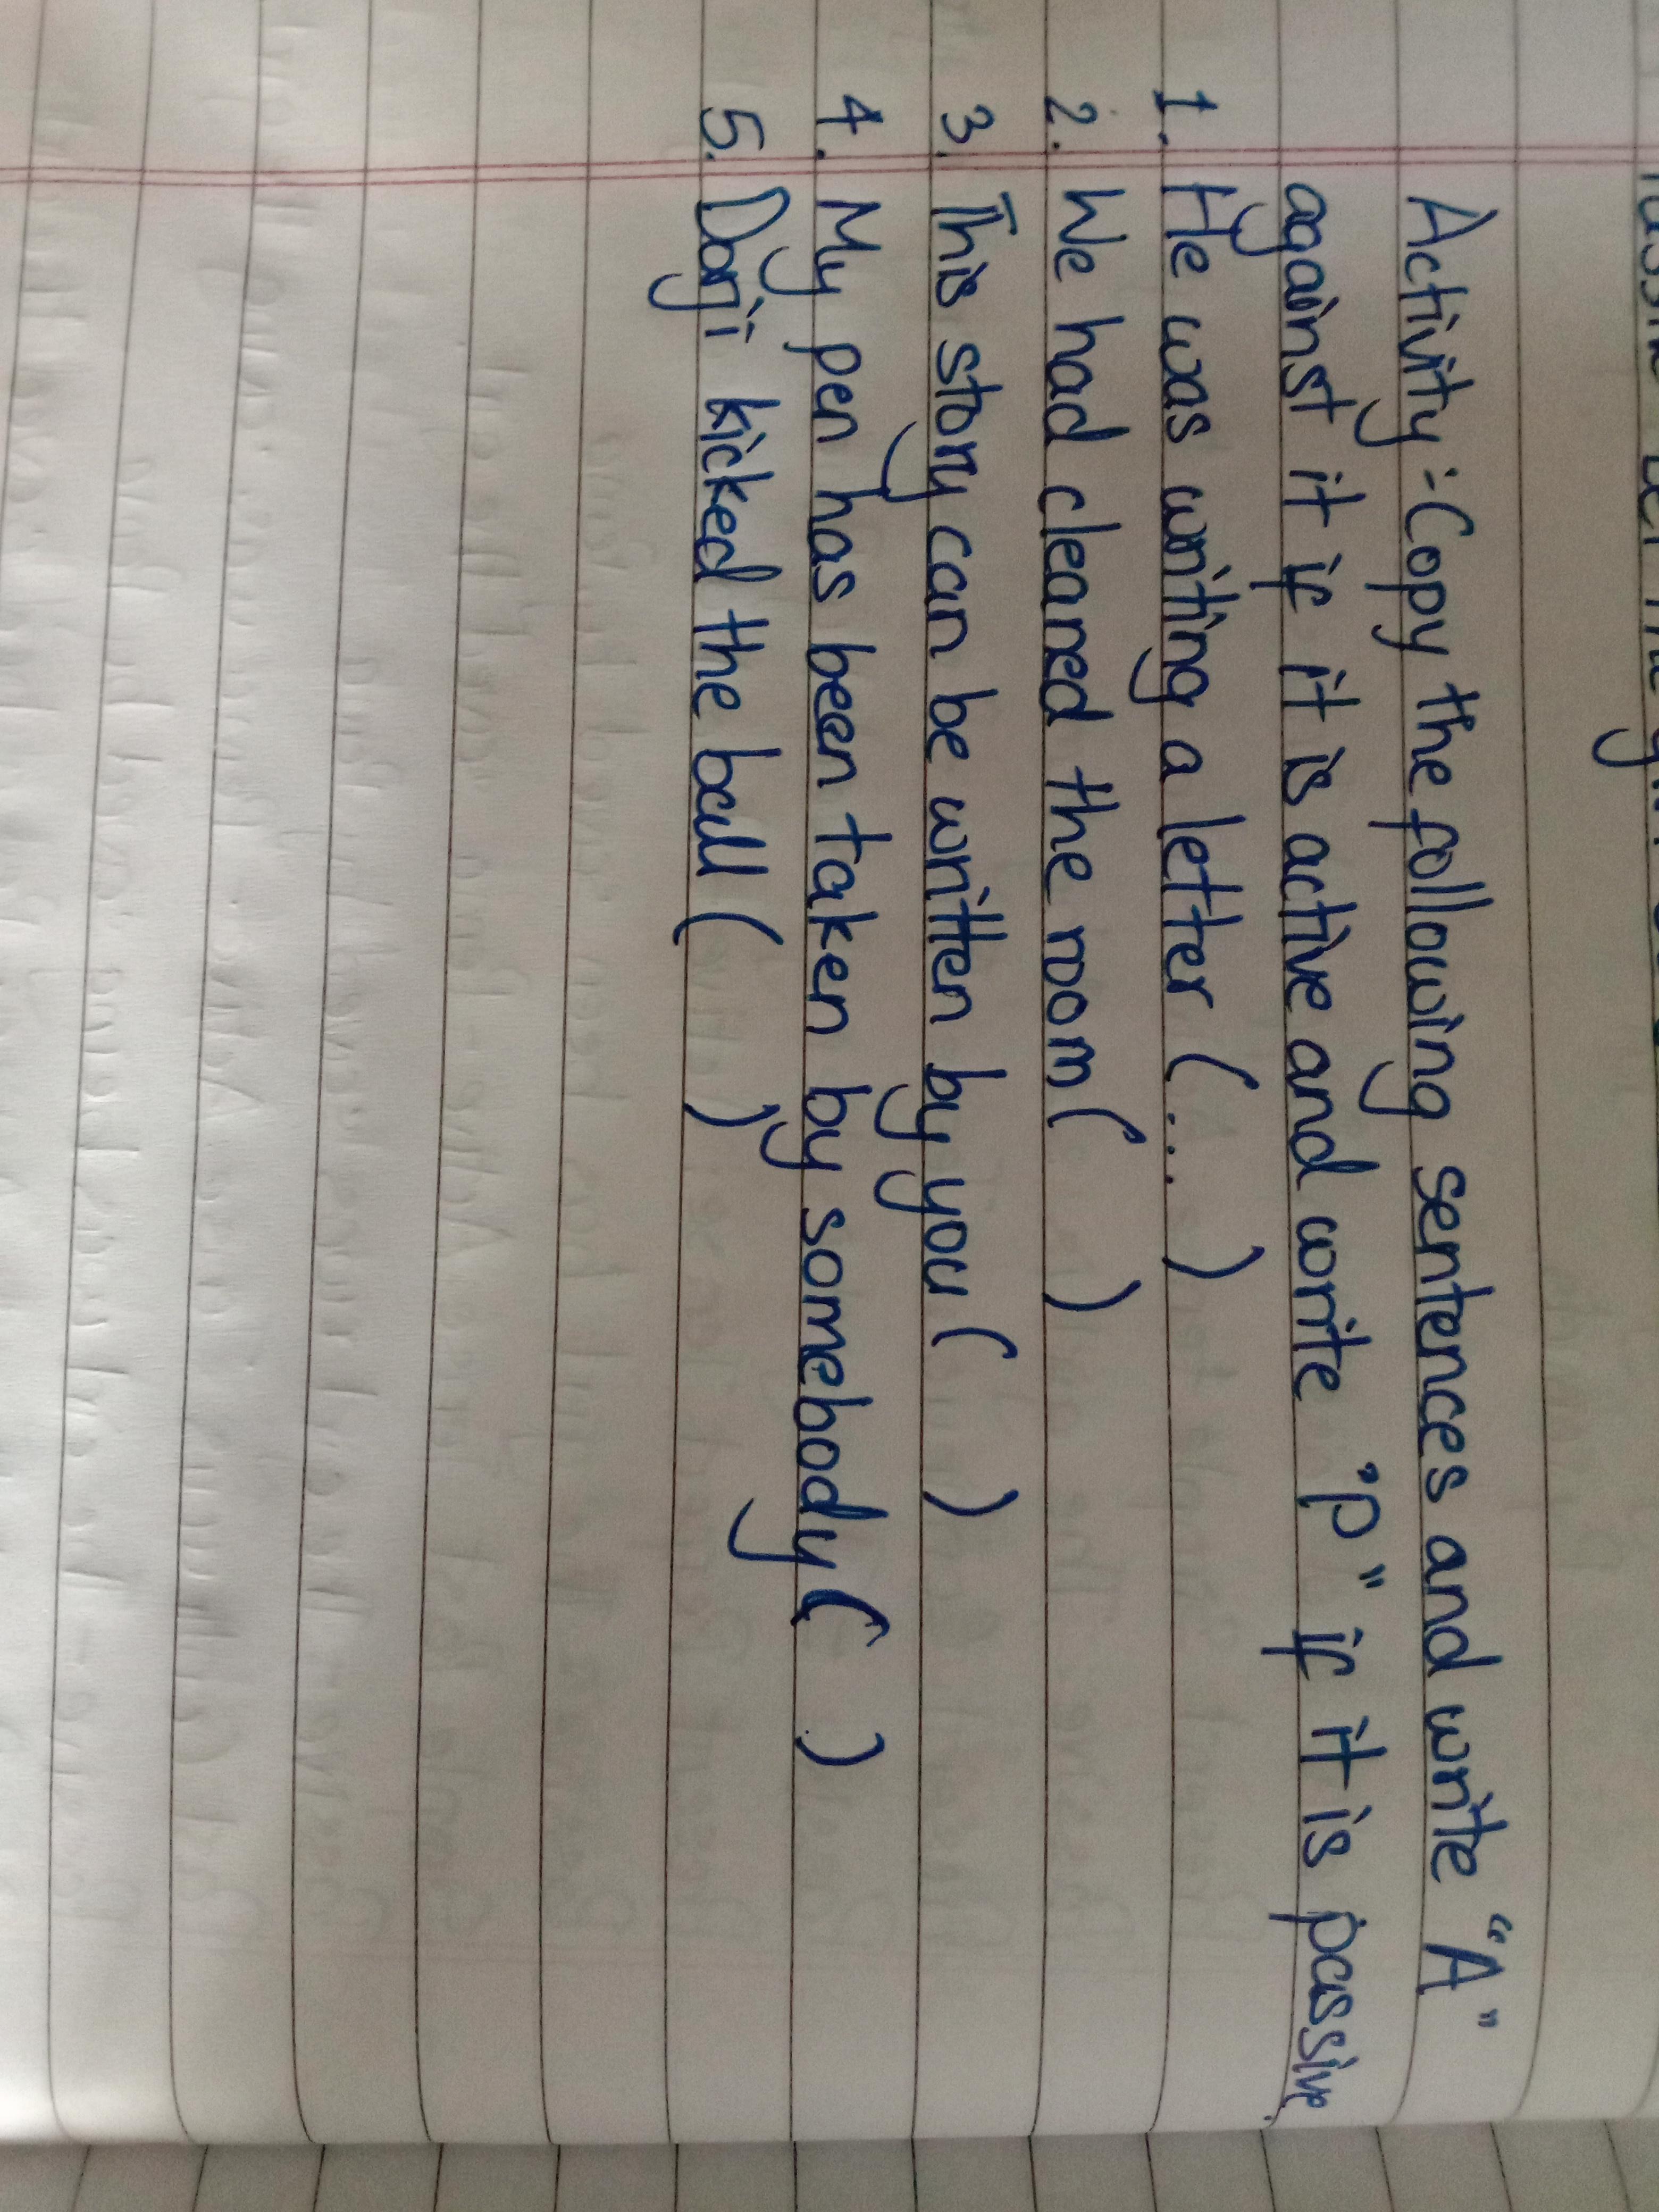 Activity:-Copy the following sentences and write "A"
against it if it is active and write "P" if it is passive.
1. He was writing a letter (...)
2. We had cleaned the room ( )
3. This story can be written by you ( )
4. My pen has been taken by somebody ( )
5. Dorji kicked the ball ( )